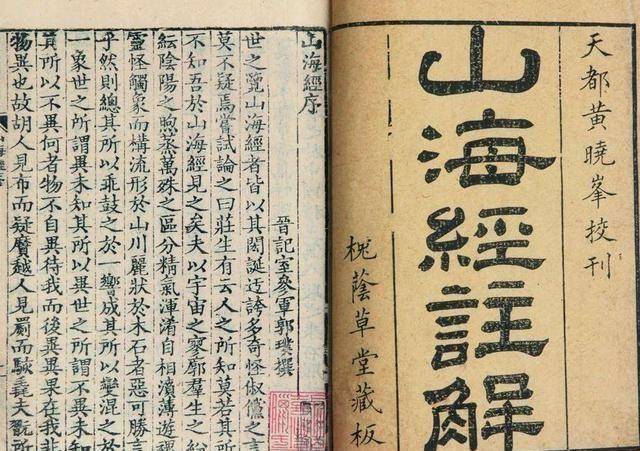 天都黄曉峯挍刊
山海經註解
槐蔭草堂藏板
山海經序
晉記室參軍郭璞撰
世之覽山海經者皆以其閎誕迂誇多奇怪俶儻之言
莫不疑焉嘗試論之曰莊生有云人之所知莫若其所
不知吾於山海經見之矣夫以宇宙之寥廓羣生之紛
紜陰陽之煦蒸萬殊之區分精氣渾淆自相濆薄遊
靈怪觸象而構流形於山川麗狀於木石者惡可勝言
乎然則總其所以乖鼓之於一響成其所以變混之於
一象世之所謂異未知其所以異世之所謂不異未知
其所以不異何者物不自異待我而後異異果在我非
物異也故胡人見布而疑黂越人見罽而駭毳夫翫所